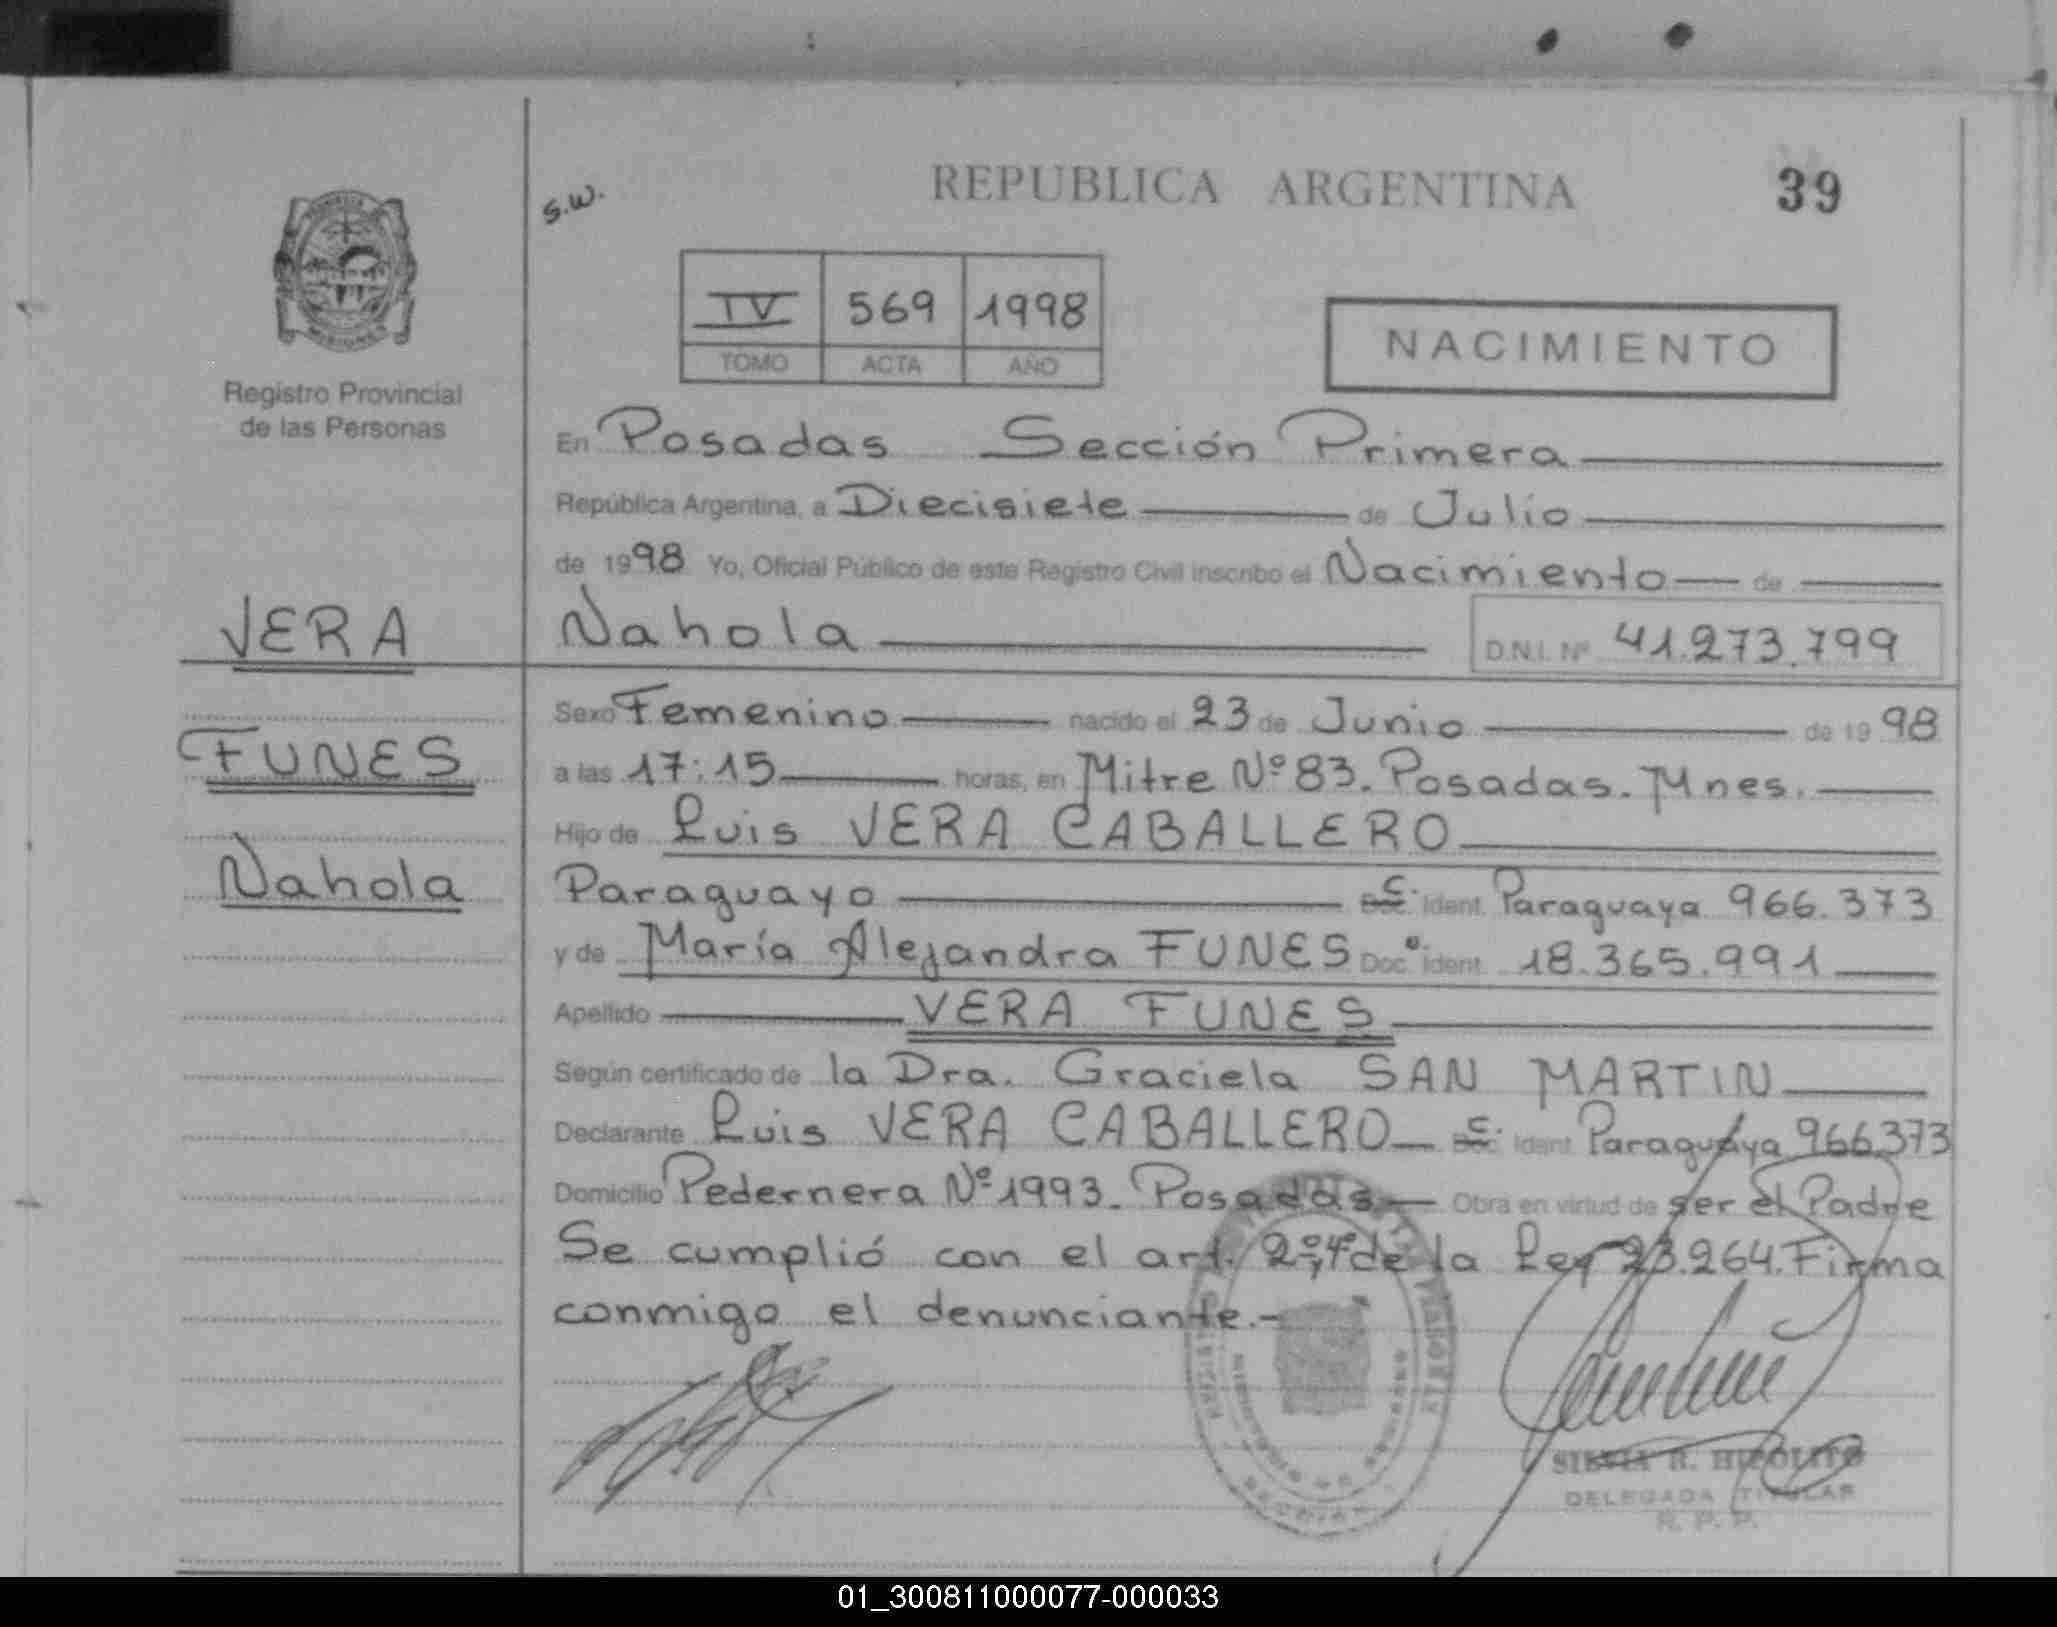 REPUBLICA ARGENTINA
39
s.w.
IV 569 1998
TOMO ACTA AÑO
NACIMIENTO
Registro Provincial
de las Personas
En Posadas Sección Primera
República Argentina, a Diecisiete de Julio
de 1998 Yo, Oficial Público de este Registro Civil inscribo el Nacimiento de
Nahola D.N.I. Nº 41.273.799
VERA
FUNES
Nahola
Sexo Femenino nacido el 23 de Junio de 1998
a las 17:15 horas, en Mitre Nº 83. Posadas. Mnes.
Hijo de Luis VERA CABALLERO
Paraguayo C. Ident. Paraguaya 966.373
y de María Alejandra FUNES Doc. Ident. 18.365.991
Apellido VERA FUNES
Según certificado de la Dra. Graciela SAN MARTIN
Declarante Luis VERA CABALLERO C. Ident. Paraguaya 966373
Domicilio Pedernera Nº 1993. Posadas Obra en virtud de ser el Padre
Se cumplió con el art. 2º y 4º de la Ley 23.264. Firma
conmigo el denunciante.-
SILVIA R. HIPOLITO
DELEGADA TITULAR
R. P. P.
01_300811000077-000033